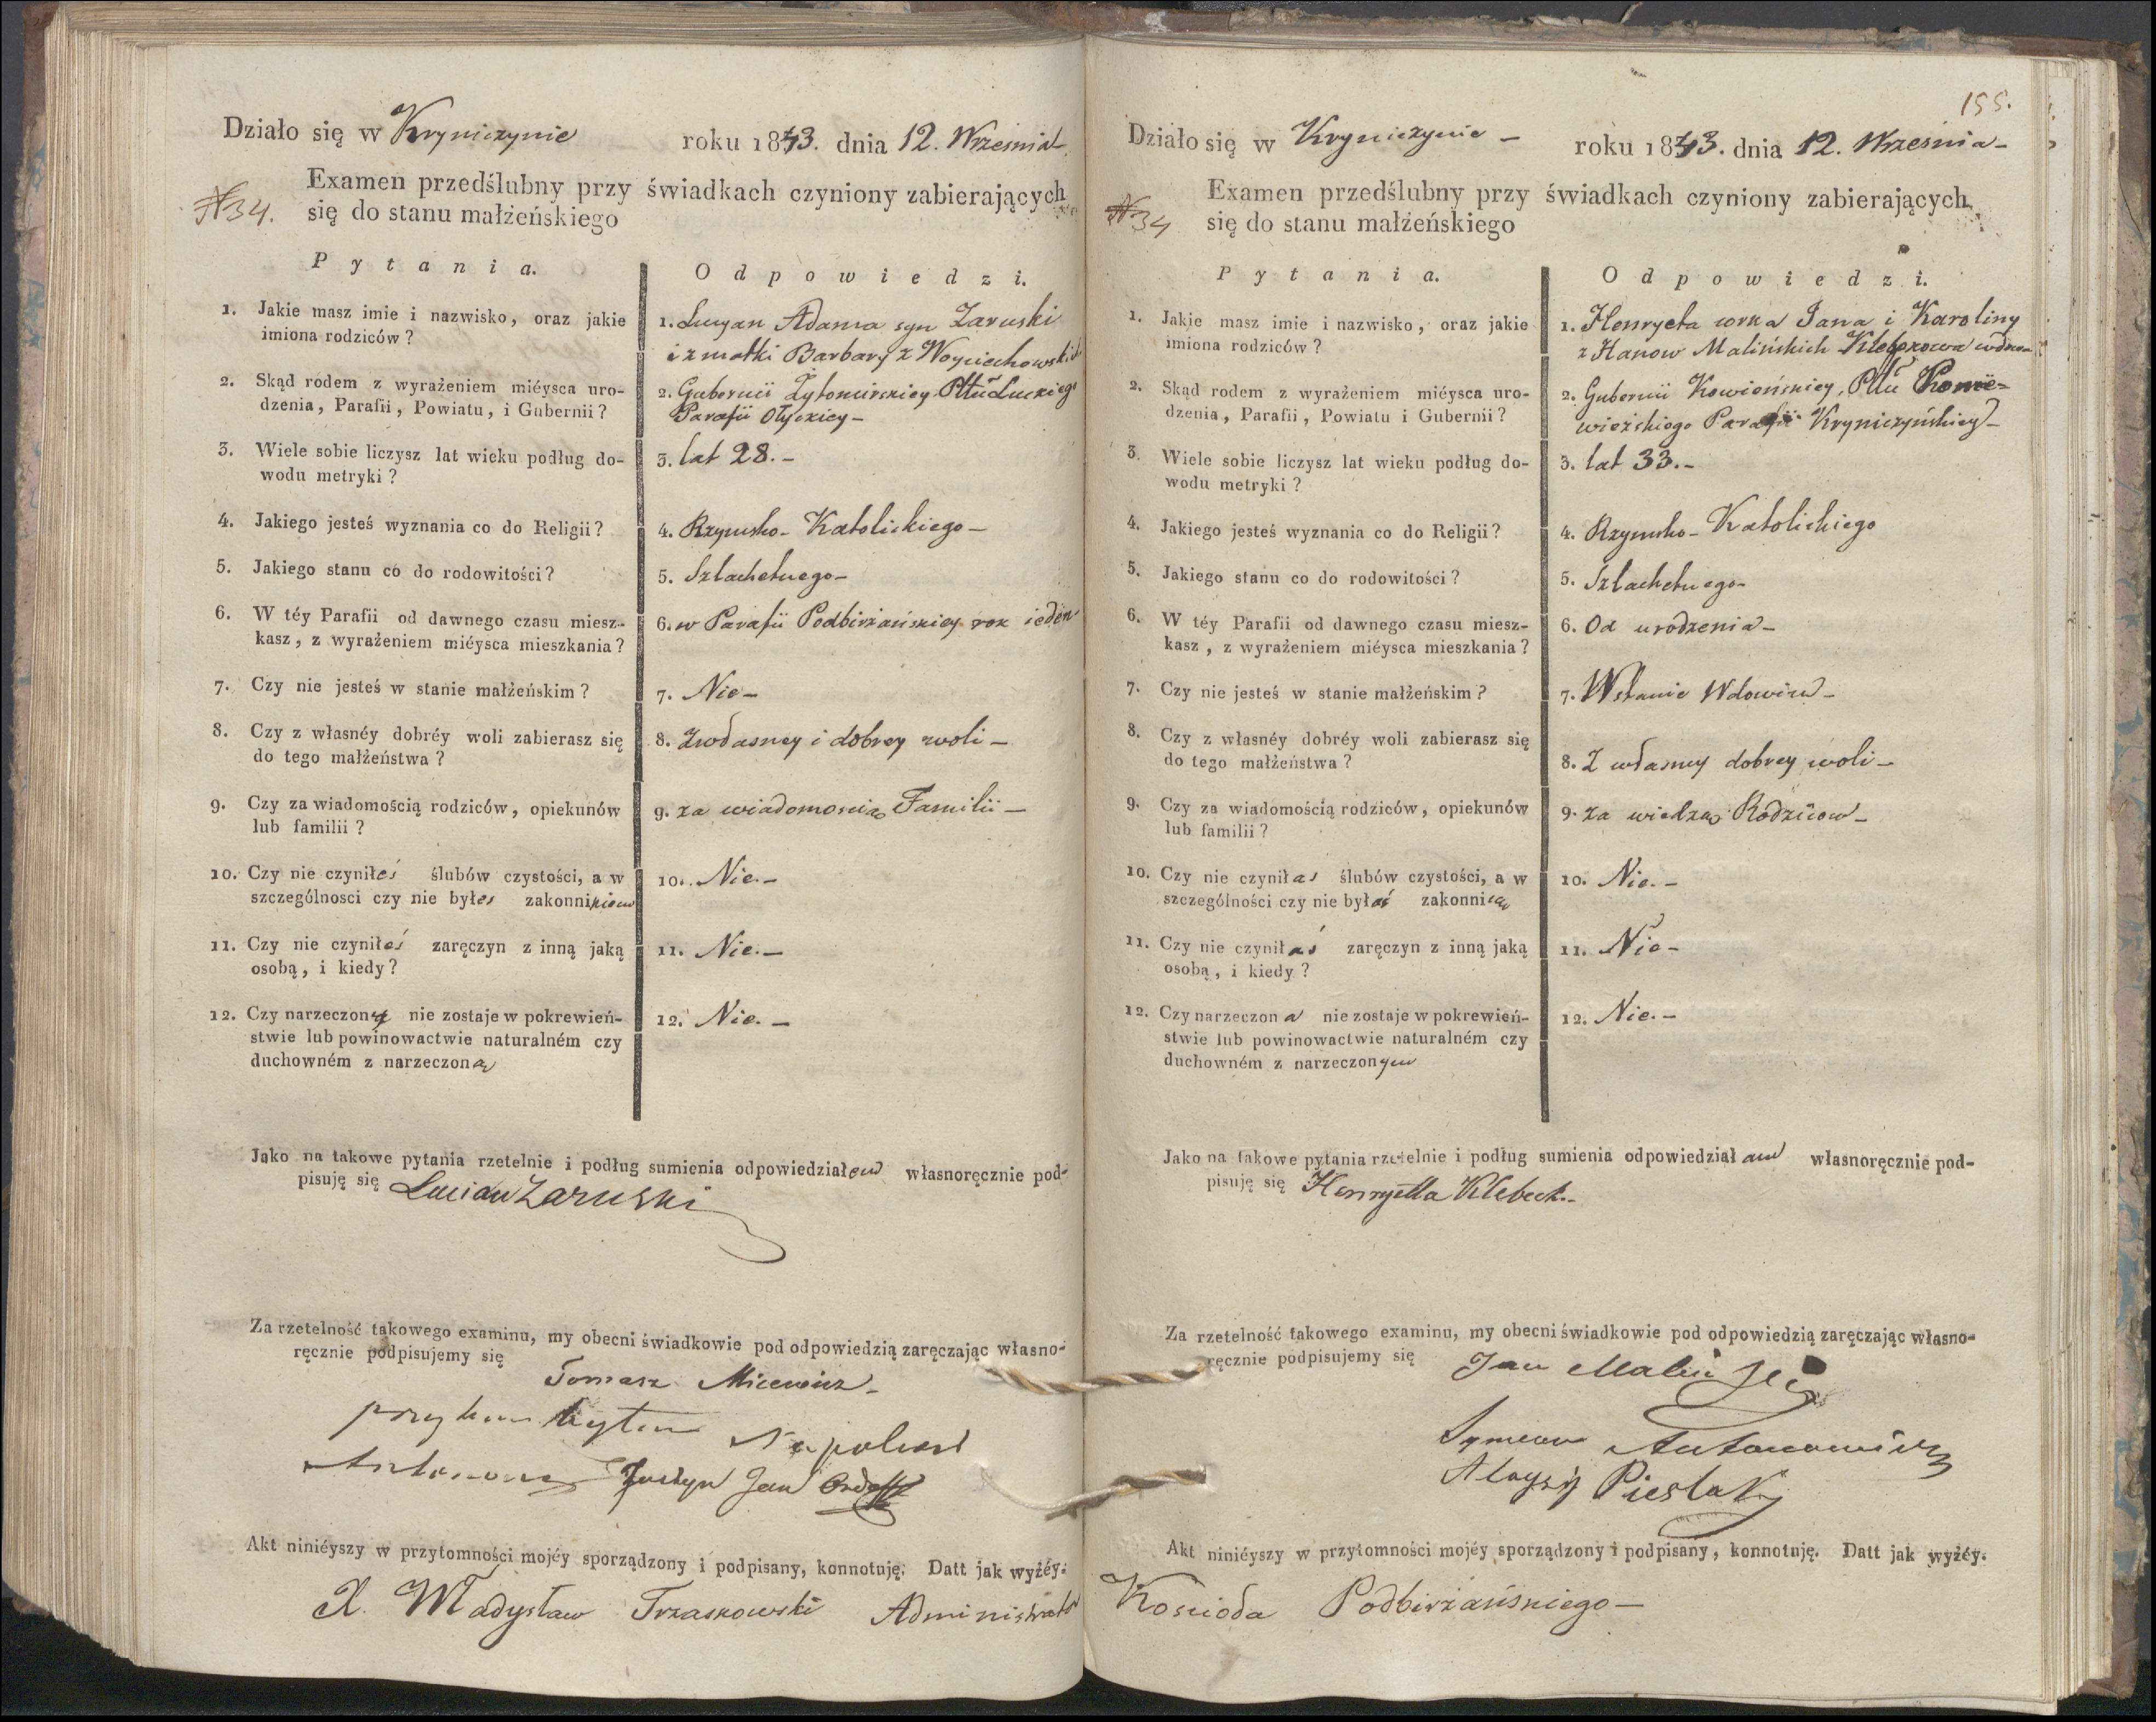 Działo się w Kryniczynie roku 1843. dnia 12. Wrzesnia
Examen przedślubny przy świadkach czyniony zabierających
N 34. się do stanu małżeńskiego
Pytania. Odpowiedzi.
1. Jakie masz imie i nazwisko, oraz jakie
imiona rodziców?
1. Lucyan Adama syn Zaruski
i z matki Barbary z Woyciechowskich
2. Skąd rodem z wyrażeniem miéysca uro-
dzenia, Parafii, Powiatu, i Gubernii?
2. Gubernii Żytomirskiey Pttu Luckiego
Parafii Ołyckiey –
3. Wiele sobie liczysz lat wieku podług do-
wodu metryki?
3. lat 28. –
4. Jakiego jesteś wyznania co do Religii?
4. Rzymsko-Katolickiego –
5. Jakiego stanu co do rodowitości?
5. Szlachetnego –
6. W téy Parafii od dawnego czasu miesz-
kasz, z wyrażeniem miéysca mieszkania?
6. w Parafii Podbirżańskiey rok ieden
7. Czy nie jesteś w stanie małżeńskim?
7. Nie –
8. Czy z własnéy dobréy woli zabierasz się
do tego małżeństwa?
8. Z własney i dobrey woli –
9. Czy za wiadomością rodziców, opiekunów
lub familii?
9. za wiadomoscią Familii –
10. Czy nie czyniłeś ślubów czystości, a w
szczególnosci czy nie byłeś zakonnikiem
10. Nie. –
11. Czy nie czyniłeś zaręczyn z inną jaką
osobą, i kiedy?
11. Nie. –
12. Czy narzeczony nie zostaje w pokrewień-
stwie lub powinowactwie naturalném czy
duchowném z narzeczoną
12. Nie. –
Jako na takowe pytania rzetelnie i podług sumienia odpowiedziałem własnoręcznie pod-
pisuję się Lucian Zaruski
Za rzetelność takowego examinu, my obecni świadkowie pod odpowiedzią zaręczając własno-
ręcznie podpisujemy się
Tomasz Micewicz
przytem byłem Napoleon
Justyn Jan
Akt niniéyszy w przytomności mojéy sporządzony i podpisany, konnotuję. Datt jak wyżéy.
X. Władysław Trzaskowski Administrator
155.
Działo się w Kryniczynie – roku 1843. dnia 12. Wrzesnia –
Examen przedślubny przy świadkach czyniony zabierających
N 34 się do stanu małżeńskiego
Pytania. Odpowiedzi.
1. Jakie masz imie i nazwisko, oraz jakie
imiona rodziców?
1. Henryeta corka Jana i Karoliny
z Hanow Malińskich Klebekowa wdowa
2. Skąd rodem z wyrażeniem miéysca uro-
dzenia, Parafii, Powiatu i Gubernii?
2. Gubernii Kowieńskiey, Pttu Ponie-
wieżskiego Parafii Kryniczyńskiey –
3. Wiele sobie liczysz lat wieku podług do-
wodu metryki?
3. lat 33. –
4. Jakiego jesteś wyznania co do Religii?
4. Rzymsko-Katolickiego
5. Jakiego stanu co do rodowitości?
5. Szlachetnego –
6. W téy Parafii od dawnego czasu miesz-
kasz, z wyrażeniem miéysca mieszkania?
6. Od urodzenia –
7. Czy nie jesteś w stanie małżeńskim?
7. W stanie Wdowim –
8. Czy z własnéy dobréy woli zabierasz się
do tego małżeństwa?
8. Z własney dobrey woli –
9. Czy za wiadomością rodziców, opiekunów
lub familii?
9. za wiedzą Rodzicow –
10. Czy nie czyniłaś ślubów czystości, a w
szczególności czy nie byłaś zakonnicą
10. Nie. –
11. Czy nie czyniłaś zaręczyn z inną jaką
osobą, i kiedy?
11. Nie –
12. Czy narzeczona nie zostaje w pokrewień-
stwie lub powinowactwie naturalném czy
duchowném z narzeczonym
12. Nie. –
Jako na takowe pytania rzetelnie i podług sumienia odpowiedziałam własnoręcznie pod-
pisuję się Henryetta Klebeck. –
Za rzetelność takowego examinu, my obecni świadkowie pod odpowiedzią zaręczając własno-
ręcznie podpisujemy się Jan Maliński
Symeon Antonowicz
Aloyzy Pieslak
Akt niniéyszy w przytomności mojéy sporządzony i podpisany, konnotuję. Datt jak wyżéy.
Kościoła Podbirżańskiego –